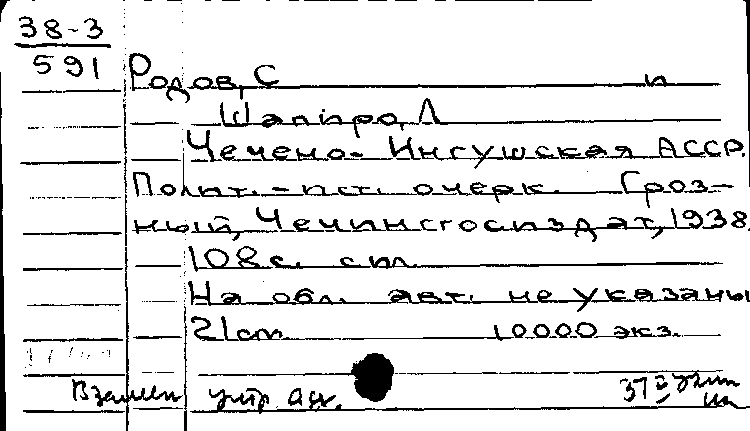 38-3
591
Родов, С и
Шапиро, Л
Чечено-Ингушская АССР.
Полит.-ист. очерк. Гроз-
ный, Чечингосиздат, 1938.
108 с. сил.
На обл. авт. не указаны
21 cm 10000 экз.
Взамен утр